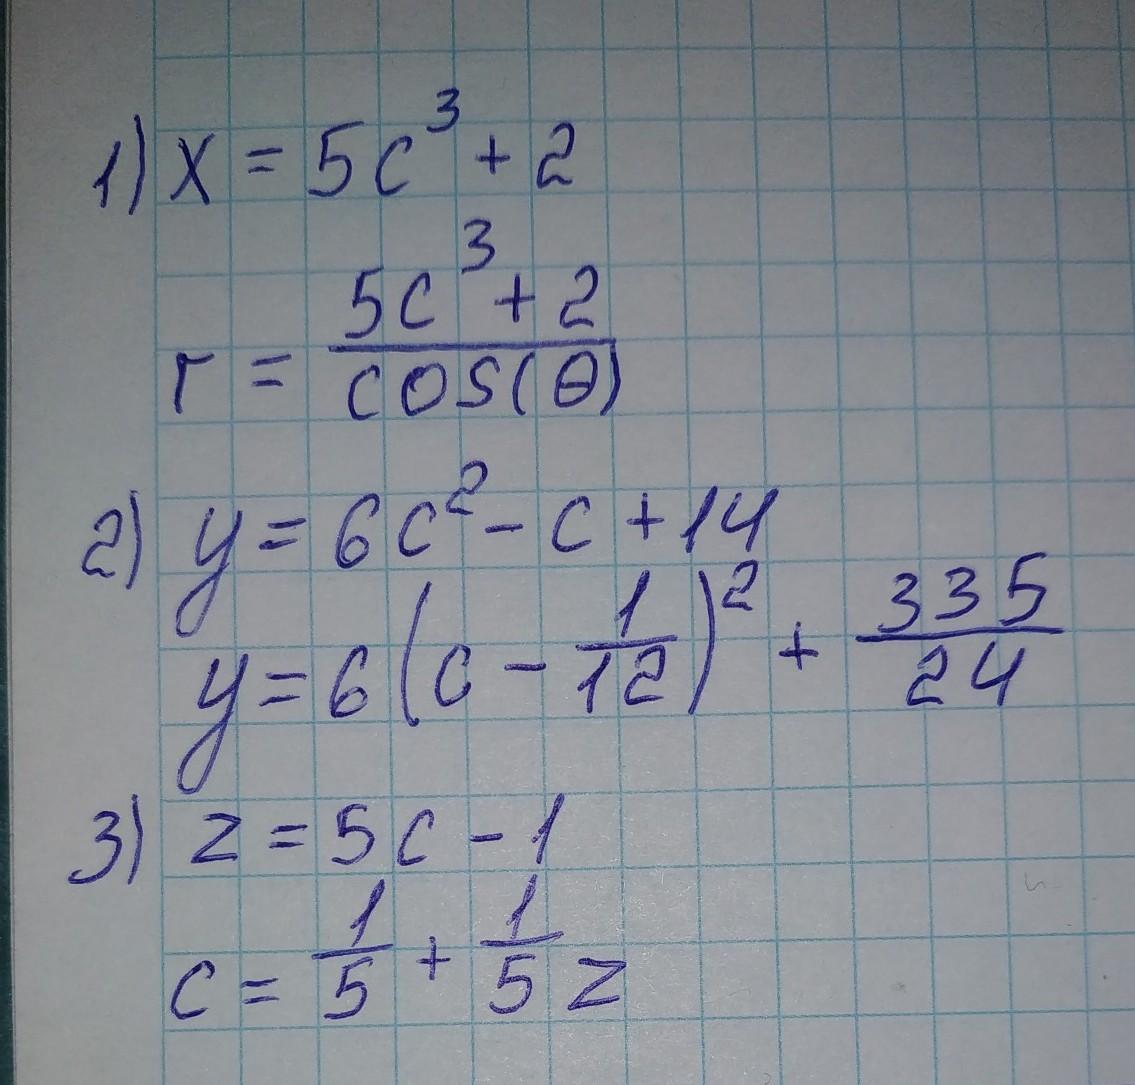 1) x = 5c³ + 2
r = (5c³ + 2)/(cos(θ))
2) y = 6c² - c + 14
y = 6(c - 1/12)² + 335/24
3) z = 5c - 1
c = 1/5 + 1/5 z